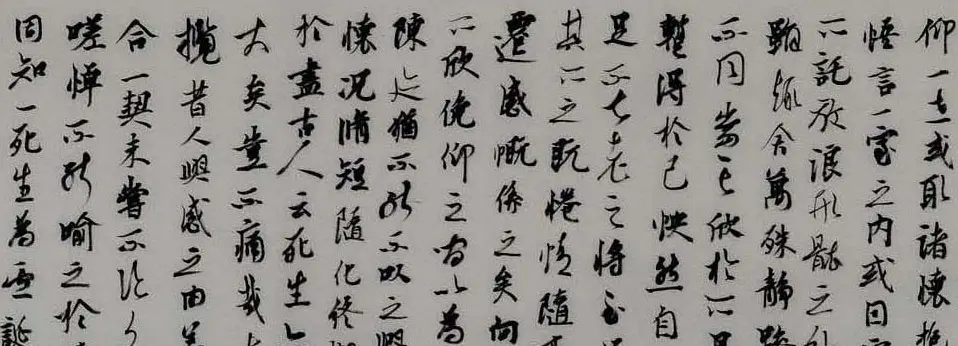 仰一世或取諸懷抱
悟言一室之內或因寄
所託放浪形骸之外
雖趣舍萬殊靜躁
不同當其欣於所遇
蹔得於己怏然自
足不知老之將至
其所之既惓情隨
遷感慨係之矣向
所欣俛仰之間以為
陳迹猶不能不以之興
懷況脩短隨化終
於盡古人云死生
大矣豈不痛哉
攬昔人興感之由若
合一契未嘗不臨
嗟悼不能喻之於
固知一死生為虛誕